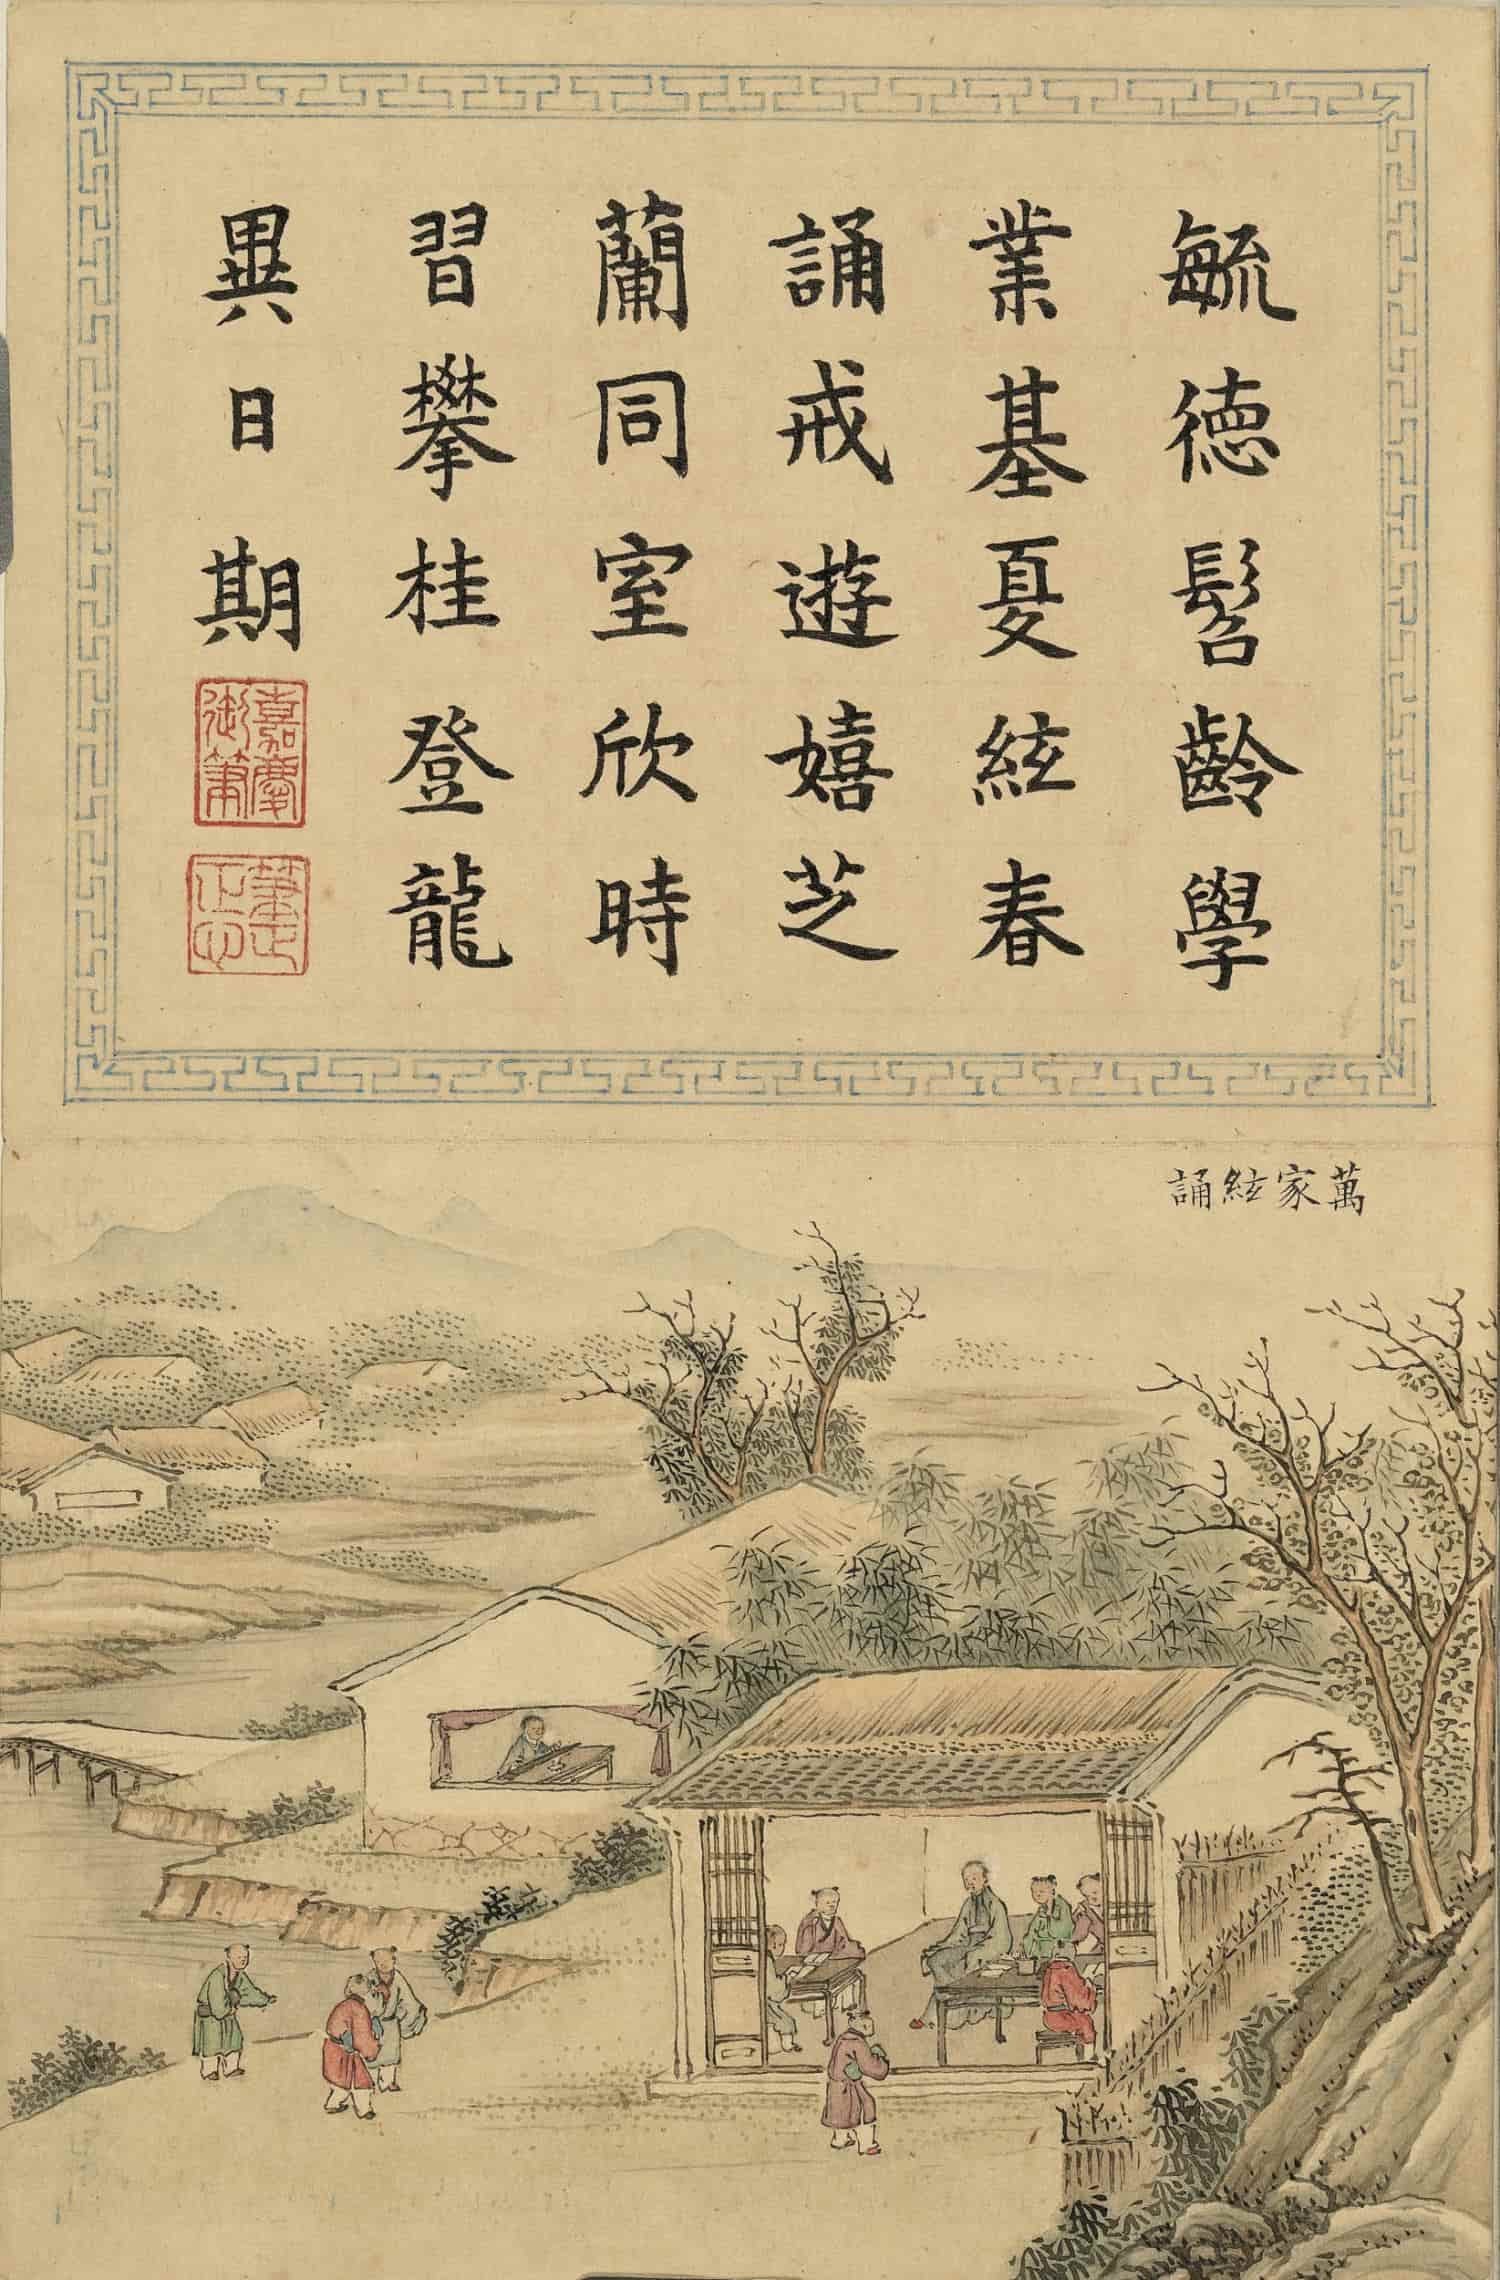 毓德髫齡學
業基夏絃春
誦戒遊嬉芝
蘭同室欣時
習攀桂登龍
異日期
嘉慶
御筆
萬家絃誦